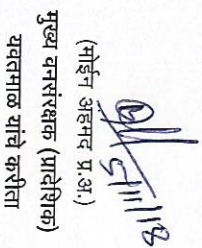 5/11/18
(मोईन अहमद प्र.अ.)
मुख्य वनसंरक्षक (प्रादेशिक)
यवतमाळ यांचे करीता